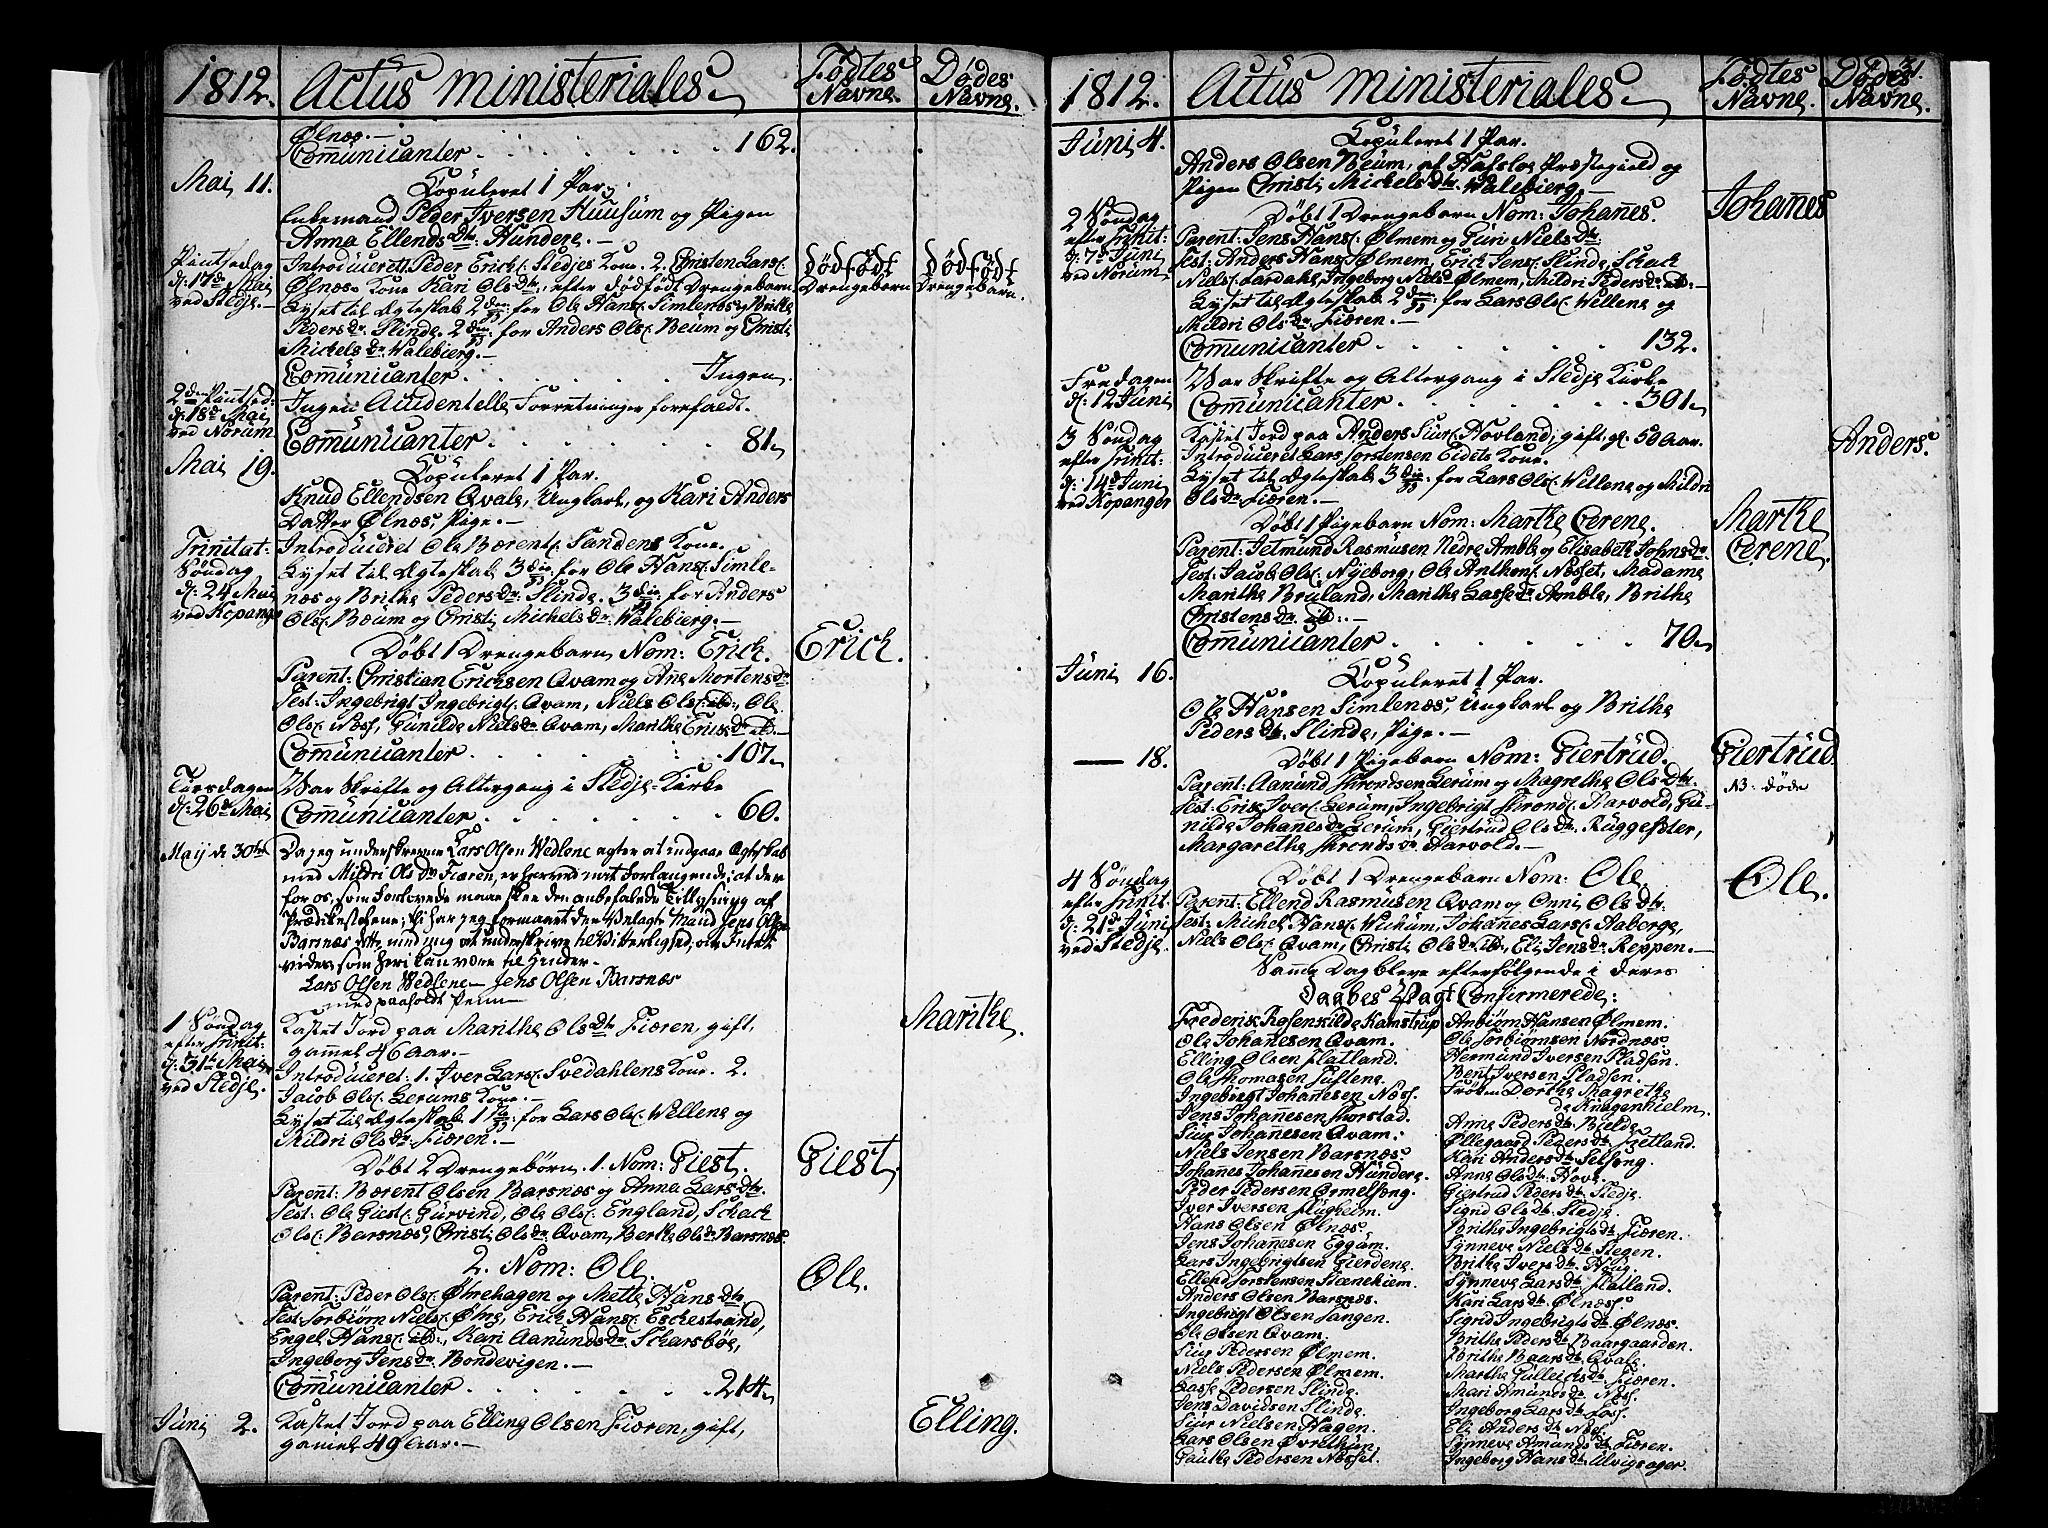 1812.
Actus ministeriales.
Fødtes
Navne.
Dødes
Navne.
Ølnæs.
Communicanter 162.
Mai 11.
Copuleret 1 Par.
Enkemand Peder Iversen Huusum og Pigen
Anna Ellends Dtr. Hundere.
Pintsedag
d: 17de Mai
ved Stedje.
Introduceret 1. Peder Erichs. Stedjes Kone. 2. Christen Lars.
Ølnæs Kone Kari Ols Dtr. efter dødfødt Drengebarn.
Lyset til Ægteskab 2den for Ole Hans. Simlenæs og Brithe
Peders Dr. Slinde. 2den for Anders Ols. Beum og Christi
Mickels Dr. Walebierg.
Communicanter Ingen.
Dødfødt
Drengebarn
Dødfødt
Drengebarn.
2den Pintsed:
d: 18de Mai
ved Norum
Ingen Accidentelle Forretninger forefaldt.
Communicanter 81.
Mai 19.
Copuleret 1 Par.
Knud Ellendsen Qvale, Ungkarl, og Kari Anders
Datter Ølnæs, Pige.
Trinitat:
Søndag
d: 24 Mai
ved Kopanger
Introduceret Ole Bærents. Sandens Kone.
Lyset til Ægteskab 3die for Ole Hans. Simle-
næs og Brithe Peders Dr. Slinde. 3die for Anders
Ols. Beum og Christi Mickels Dr. Walebierg.
Døbt 1 Drengebarn Nom: Erich.
Erich.
Parent: Christian Ericksen Qvam og Ane Mortens Dr.
Test: Ingebrigt Ingebrigts. Qvam, Niels Ols. ibd:, Ole
Ols. Næss, Gunilde Niels Dr. Qvam, Marithe Ericks Dr. ibd.
Communicanter 107.
Tirsdagen
d: 26de Mai
War Skrifte og Altergang i Stedje Kirke
Communicanter 60.
Maij de 30te
Da jeg underskrevne Lars Olsen Wedlene agter at indgaae Ægteskab
med Mildri Ols Dr. Fiæren, er herved mit Forlangende, at der
for os, som Forlovede maae skee den anbefalede Tillysning af
Prædikestolene; thi har jeg formaaet den Velagte Mand Jens Olsen
Barsnæs dette med mig at underskrive til Vitterlighed, at Intet
vides som heri kan være til Hinder.
Lars Olsen Wedlene Jens Olsen Barsnæs
med paaholdt Penn
1 Søndag
efter Trinit:
d: 31te Mai
ved Stedje.
Kastet Jord paa Marithe Ols Dtr. Fiæren, gift,
gammel 46 Aar.
Marithe.
Introduceret: 1. Iver Lars. Svedahlens Kone. 2.
Jacob Ols. Lerums Kone.
Lyset til Ægteskab 1te for Lars Ols. Wellene og
Mildri Ols Dr. Fiæren.
Døbt 2 Drengebørn. 1. Nom: Giest.
Giest.
Parent: Bærent Olsen Barsnæs og Anna Lars Dtr.
Test: Ole Giest. Gurvind, Ole Ols. Engeland, Schack
Ols. Barsnæs, Christi Ols Dr. Qvam, Berthe Ols Dr. Barsnæs.
2. Nom: Ole.
Ole.
Parent: Peder Ols. Øhrehagen og Mette Hans Dtr.
Test: Torbiørn Niels. Øhre, Erick Hans. Eschestrand,
Engel Hans. ibd:, Kari Aamunds Dr. Skarsbøe,
Ingeborg Jens Dr. Bondevigen.
Communicanter 214.
Juni 2.
Kastet Jord paa Elling Olsen Fiæren, gift,
gamel 49 Aar.
Elling.
1812.
Actus ministeriales
Fødtes
Navne.
Dødes
Navne.
Juni 4.
Copuleret 1 Par.
Anders Olsen Beum, af Hafslo Præstegield og
Pigen Christi Mickels Dtr. Walebierg.
2 Søndag
efter Trinit:
d: 7de Juni
ved Norum
Døbt 1 Drengebarn Nom: Johannes.
Johannes
Parent: Jens Hans. Ølmem og Guri Niels Dtr.
Test: Anders Hans. Ølmem, Erick Jens. Slinde, Schack
Niels. Lærdahl, Ingeborg Niels Dr. Ølmem, Mildri Peders Dr. ib:
Lyset til Ægteskab 2den for Lars Ols. Wellene og
Mildri Ols Dr. Fiæren.
Communicanter 132.
Fredagen
d: 12 Juni
War Skrifte og Altergang i Stedje Kirke
Communicanter 301.
3 Søndag
efter Trinit:
d: 14de Juni
ved Kopanger
Kastet Jord paa Anders Siurs. Hovland, gift, gl. 50 Aar.
Anders.
Introduceret Lars Torstensen Eidets Kone.
Lyset til Ægteskab 3die for Lars Ols. Wellene og Mildri
Ols Dr. Fiæren.
Døbt 1 Pigebarn Nom: Marthe Cerene.
Marthe
Cerene.
Parent: Jetmund Rasmusen Nedre Amble og Elisabeth Johns Dr.
Test: Jacob Ols. Nyeborg, Ole Anthons. Næsset, Madame
Marithe Bruland, Marithe Lasse Dr. Amble, Brithe
Christens Dr. ib:
Communicanter 70.
Juni 16.
Copuleret 1 Par.
Ole Hansen Simlenæs, Ungkarl og Brithe
Peders Dtr. Slinde, Pige.
— 18.
Døbt 1 Pigebarn Nom: Giertrud.
Giertrud
NB: døde
Parent: Aamund Throndsen Lerum og Magrethe Ols Dtr.
Test: Erick Ivers. Lerum, Ingebrigt Thronds. Harvold, Gu-
nilde Johannes Dr. Lerum, Giertrud Ols Dr. Ruggesæter,
Margarethe Thronds Dr. Harvold.
4 Søndag
efter Trinit:
d: 21de Juni
ved Stedje.
Døbt 1 Drengebarn Nom: Ole
Ole.
Parent: Ellend Rasmusen Qvam og Onni Ols Dtr.
Test: Michel Hans. Wichum, Johannes Lars. Aaberge,
Niels Ols. Qvam, Christi Ols Dr. ibd:, Eli Jens Dr. Reppen.
Samme Dag bleve efterfølgende i deres
Daabes Pagt Confirmerede:
Frederik Rosenkilde Kamstrup
Ole Johanesen Qvam.
Elling Olsen Flatland.
Ole Thomasen Tuftene.
Ingebrigt Johannesen Næss.
Jens Johannesen Thorstad.
Siur Johannesen Qvam.
Niels Jensen Barsnæs.
Johannes Johannesen Hundere.
Peder Pedersen Ormelsøng.
Iver Iversen Flugheim.
Hans Olsen Ølnæs.
Jens Johannesen Eggum.
Lars Ingebrigtsen Gierdene.
Ellend Torstensen Steenehiem.
Anders Olsen Barsnæs.
Ingebrigt Olsen Tangen.
Ole Olsen Qvam.
Siur Pedersen Ølmem.
Niels Pedersen Ølmem.
Lasse Pedersen Slinde.
Jens Davidsen Slinde.
Siur Nielsen Hagen.
Lars Olsen Øvrethun.
Gauthe Pedersen Næsset.
Anbiørn Hansen Ølmem.
Ole Torbiørnsen Nordnæs.
Hermund Iversen Pladsen.
Bent Iversen Pladsen.
Frøken Dorthe Magrethe
de Knagenhielm.
Anne Peders Dtr. Bielde.
Øllegaard Peders Dtr. Fretland.
Kari Anders Dtr. Selseng.
Anne Ols Dtr. Hove.
Giertrud Peders Dtr. Stedje.
Signi Ols Dtr. Stedje.
Brithe Ingebrigts Dtr. Fiæren.
Synneve Niels Dtr. Stegen.
Brithe Ivers Dtr. Houg.
Synneve Lars Dtr. Flatland.
Kari Lars Dtr. Ølnæss.
Sigrid Ingebrigts Dtr. Ølnæs.
Brithe Peders Dtr. Baargaarden.
Brithe Baars Dtr. Qvale.
Marthe Gulleichs Dtr. Fiæren.
Mari Amunds Dtr. Næss.
Ingeborg Lars Dtr. Foss.
Eli Anders Dtr. Næss.
Synneve Amunds Dtr. Fiæren.
Ingeborg Hans Dtr. Ulvigsager.